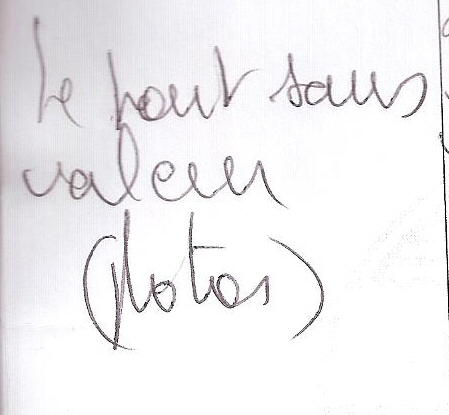 Le pont sans
valeur
(photos)